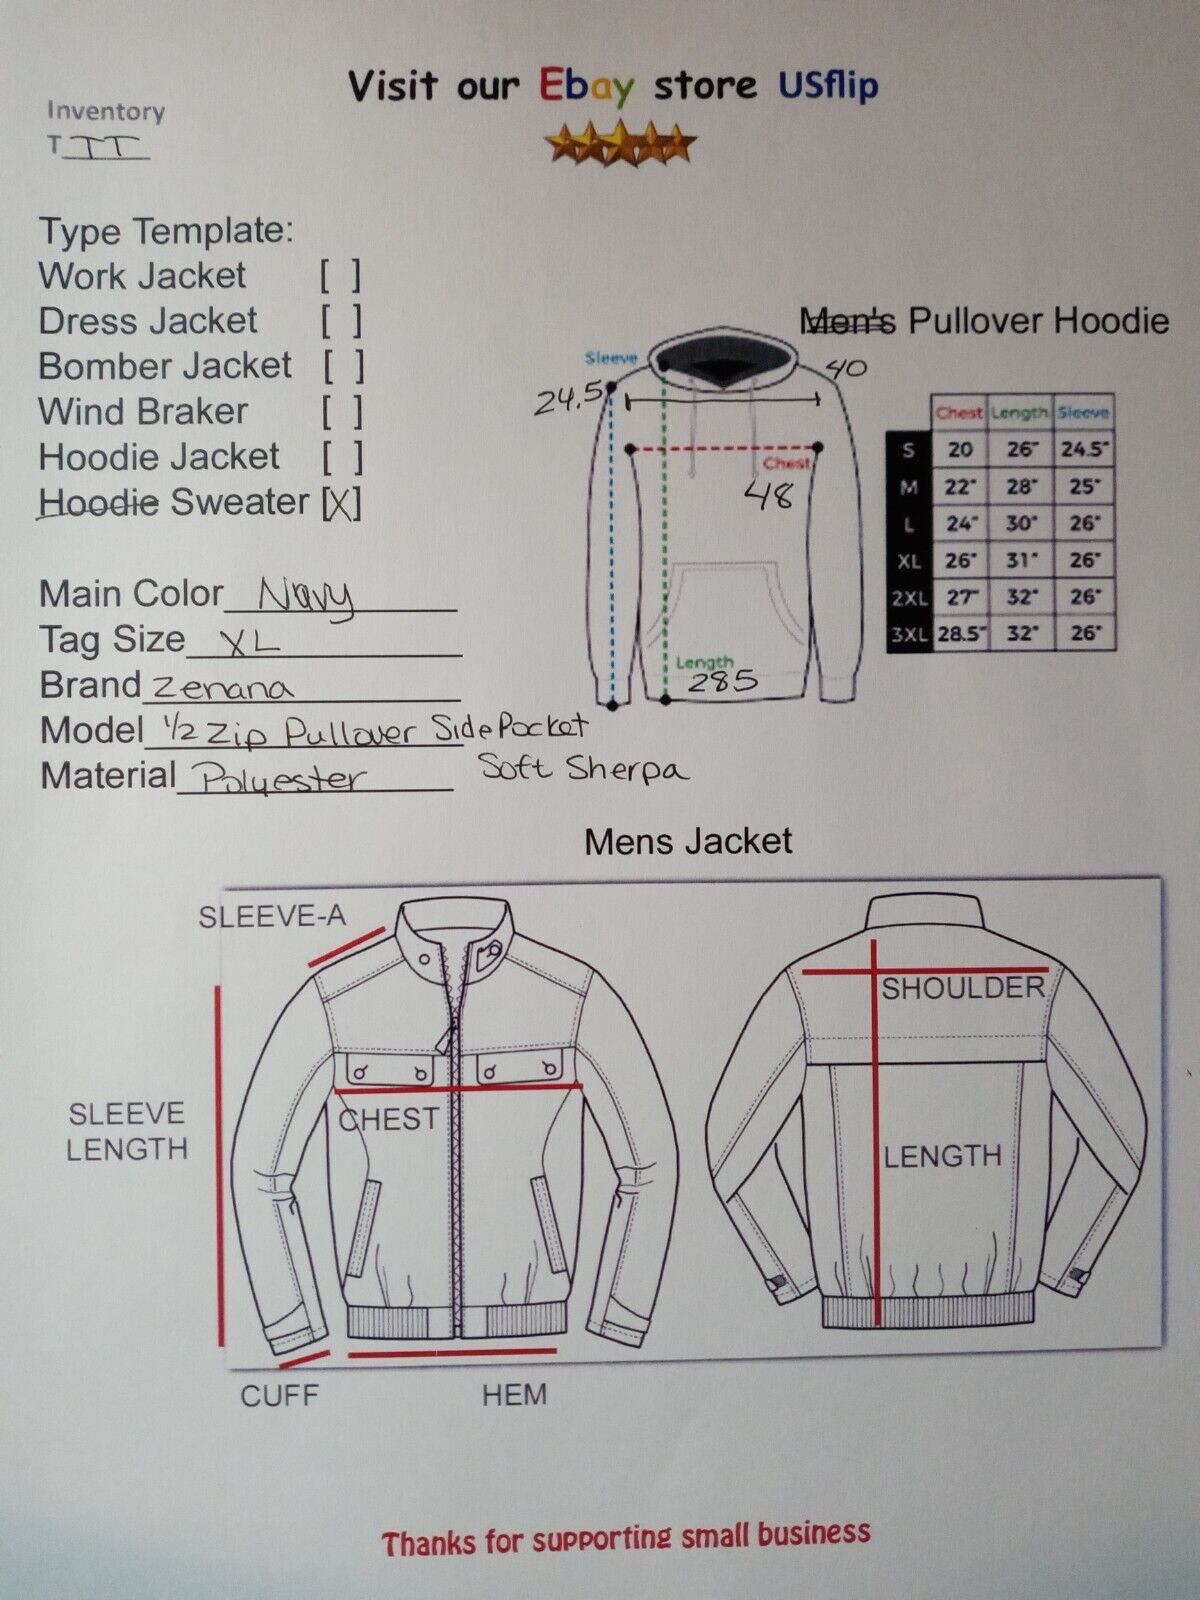 Visit our Ebay store USflip
Inventory
T TT
Type Template:
Work Jacket [ ]
Dress Jacket [ ]
Bomber Jacket [ ]
Wind Braker [ ]
Hoodie Jacket [ ]
Hoodie Sweater [X]
Main Color Navy
Tag Size XL
Brand Zenana
Model 1/2 Zip Pullover Side Pocket
Material Polyester Soft Sherpa
Men's Pullover Hoodie
Sleeve
40
24.5
Chest
48
Length
285
Chest Length Sleeve
S 20 26" 24.5"
M 22" 28" 25"
L 24" 30" 26"
XL 26" 31" 26"
2XL 27" 32" 26"
3XL 28.5" 32" 26"
Mens Jacket
SLEEVE-A
SHOULDER
CHEST
SLEEVE
LENGTH
LENGTH
CUFF
HEM
Thanks for supporting small business